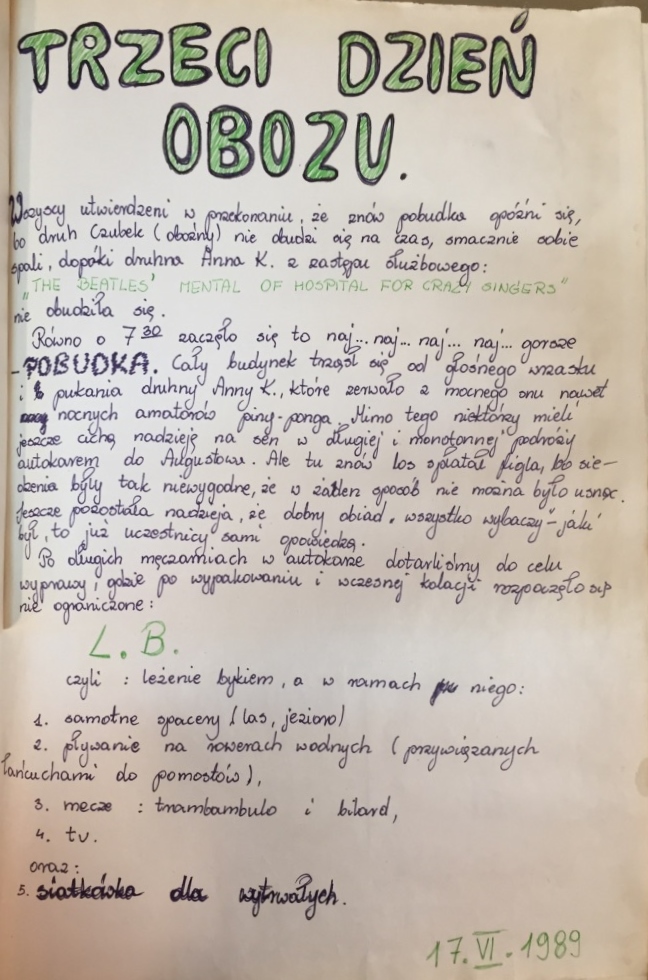 TRZECI DZIEŃ
OBOZU.
Wszyscy utwierdzeni w przekonaniu, że znów pobudka opóźni się,
bo druh Czubek (oboźny) nie obudzi się na czas, smacznie sobie
spali, dopóki druhna Anna K. z zastępu służbowego:
"THE BEATLES' MENTAL OF HOSPITAL FOR CRAZY SINGERS"
nie obudziła się.
Równo o 7 30 zaczęło się to naj... naj... naj... naj... gorsze
- POBUDKA. Cały budynek trząsł się od głośnego wrzasku
i pukania druhny Anny K., które zerwało z mocnego snu nawet
nocnych amatorów piny-ponga. Mimo tego niektórzy mieli
jeszcze cichą nadzieję na sen w długiej i monotonnej podróży
autokarem do Augustowa. Ale tu znów los spłatał figla, bo sie-
dzenia były tak niewygodne, że w żaden sposób nie można było usnąć.
Jeszcze pozostała nadzieja, że dobry obiad „wszystko wybaczy" - jaki
był, to już uczestnicy sami opowiedzą.
Po długich męczarniach w autokarze dotarliśmy do celu
wyprawy, gdzie po wypakowaniu i wczesnej kolacji rozpoczęło się
nie ograniczone:
L.B.
czyli : leżenie bykiem, a w ramach niego:
1. samotne spacery (las, jezioro)
2. pływanie na rowerach wodnych (przywiązanych
łańcuchami do pomostów),
3. mecze : trambambulo i bilard,
4. tv.
oraz:
5. siatkówka dla wytrwałych.
17.VI.1989